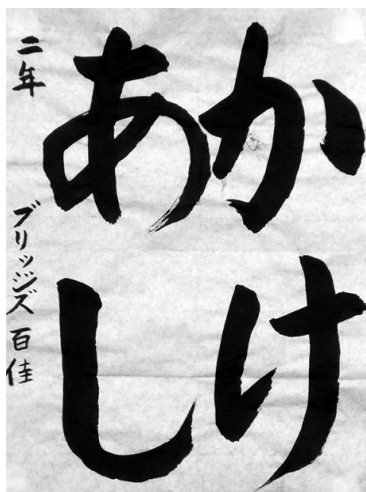 かけ
あし
二年 ブリッジズ 百佳